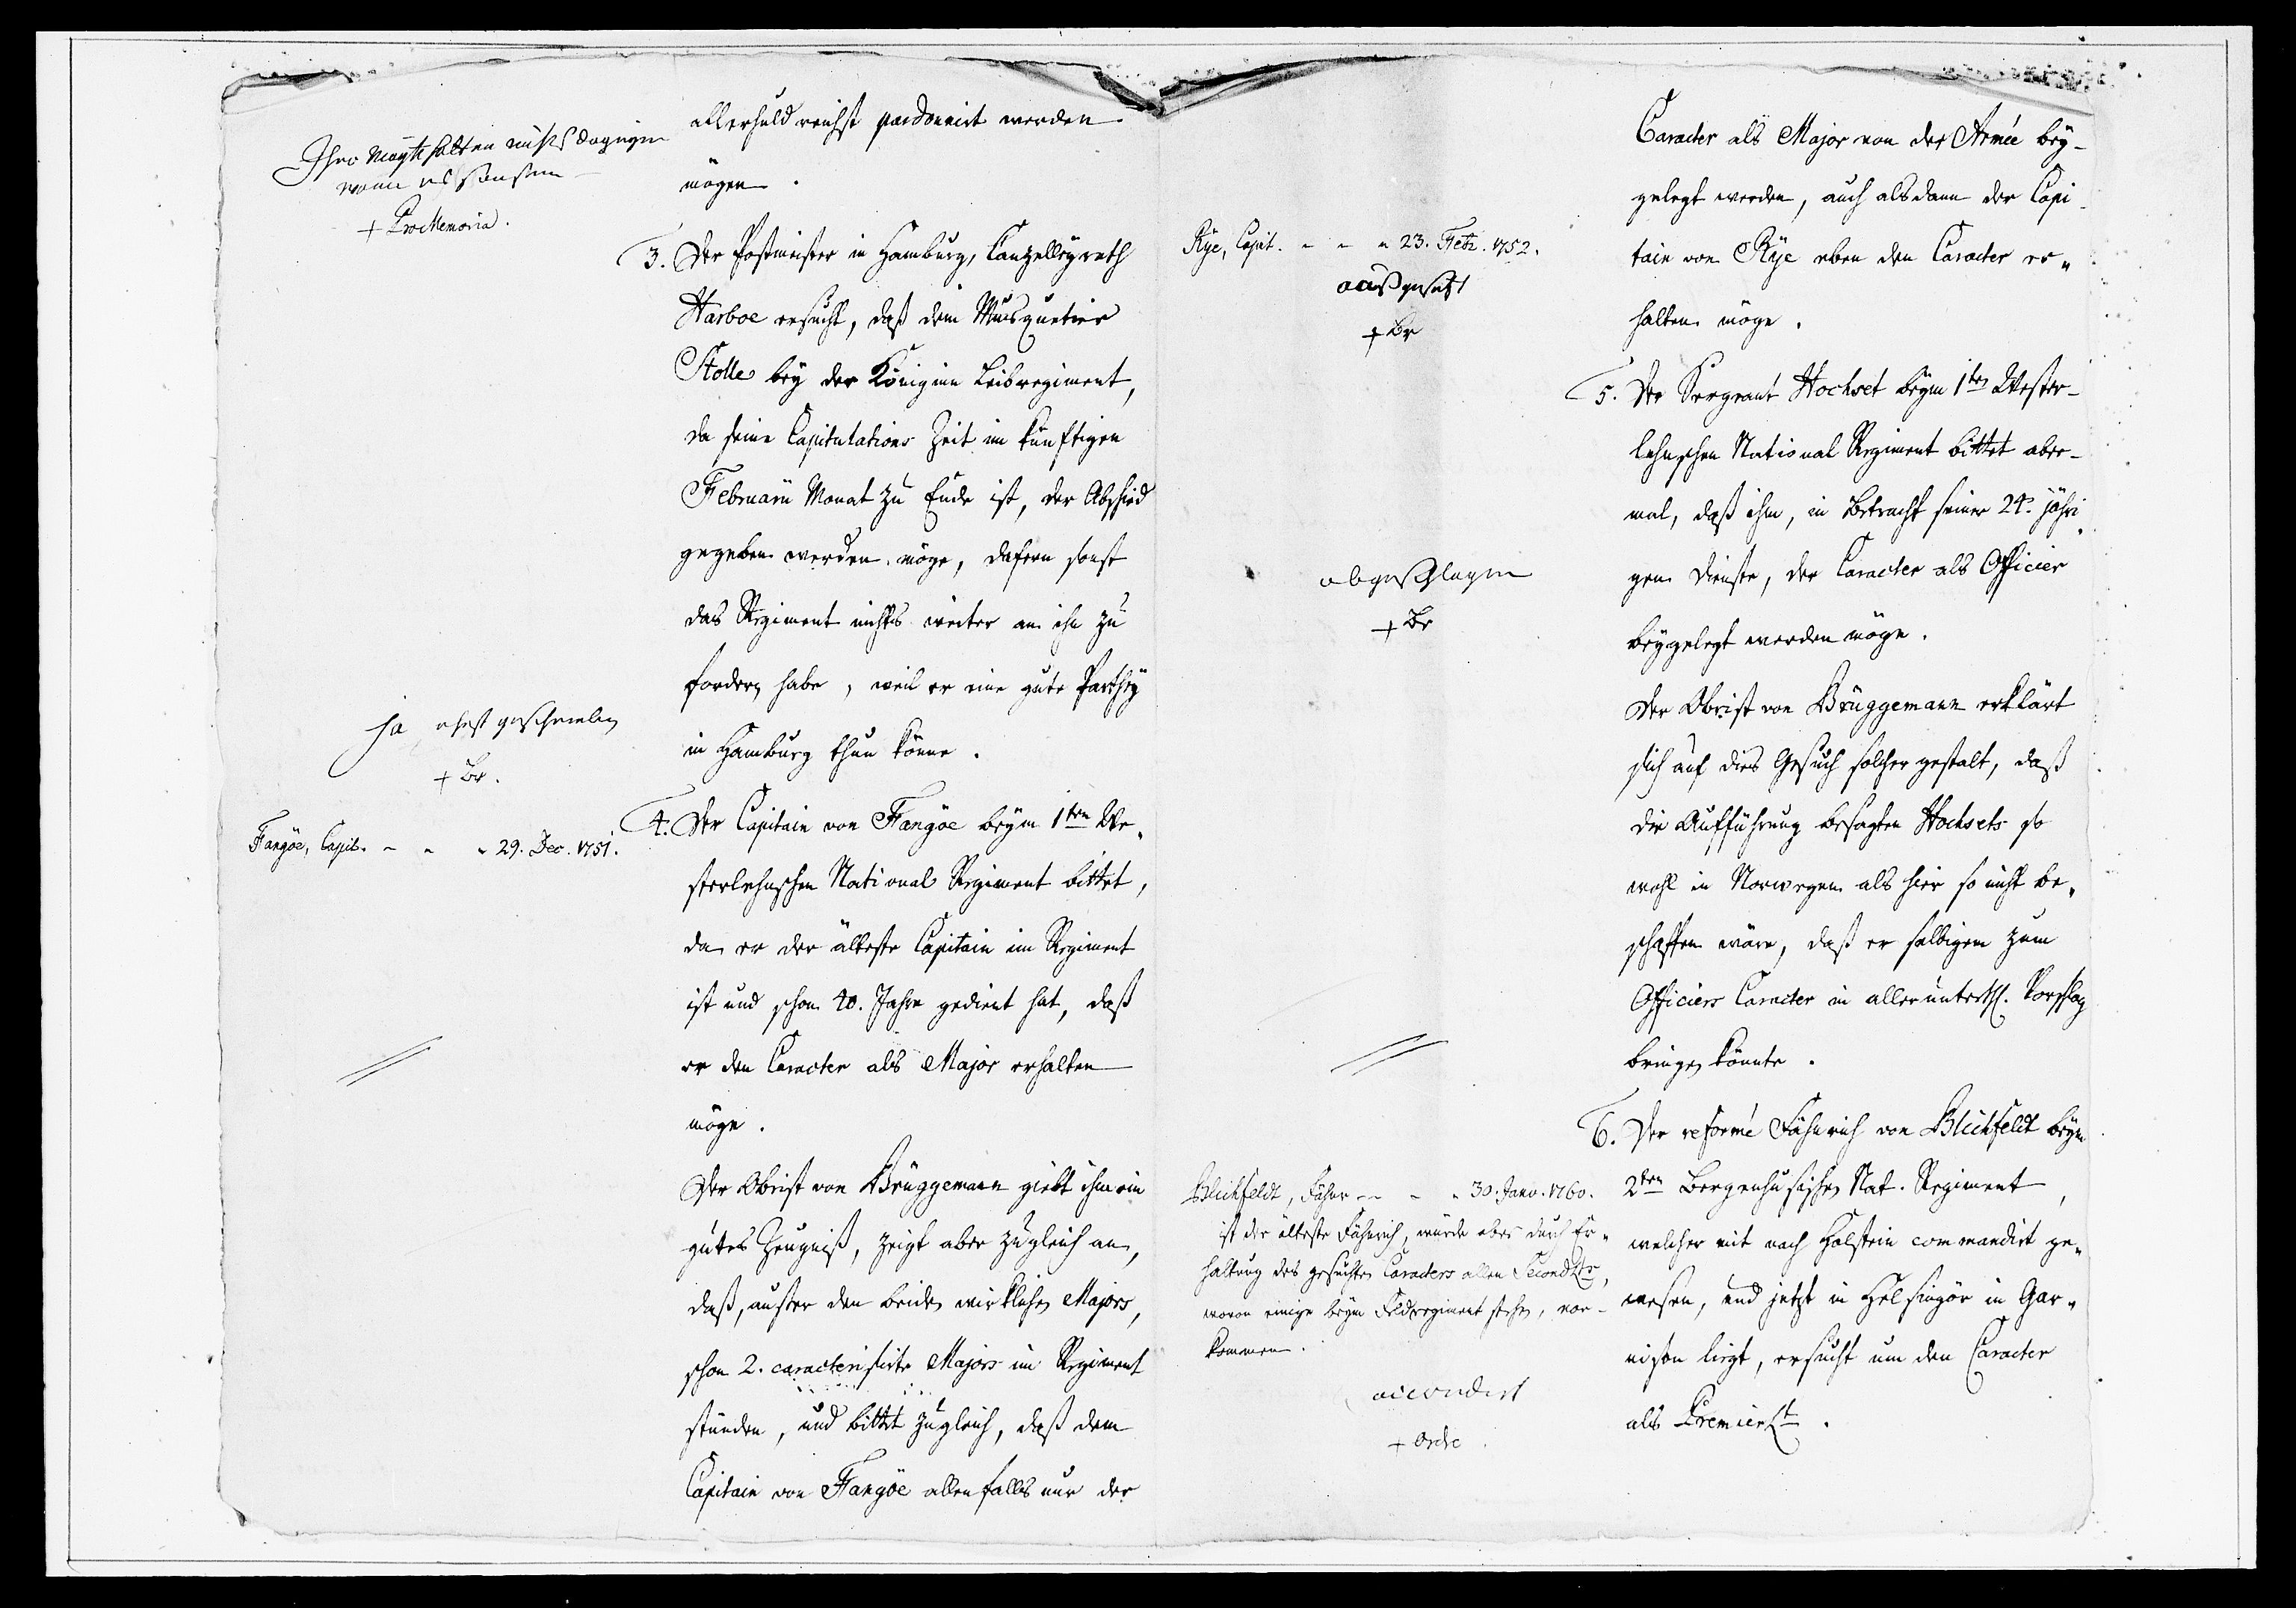 allerhuldreichst pardonnirt werden
mögen.
Ihro Maytt halten nichts dagegen
wann es
+ ProMemoria.
3. Der Postmeister in Hamburg, Canzelleyrath
Harboe ersucht, daß dem Musquetier
Stolle bey der Königinn Leibregiment,
da seine Capitulations Zeit im künftigen
Februarii Monat zu Ende ist, der Abschied
gegeben werden möge, dafern sonst
das Regiment nichts weiter an ihn zu
fordern habe, weil er eine gute Parthey
in Hamburg thun könne.
ja
+ Br.
4. Der Capitain von Fangöe beym 1ten We„
sterlehnschen National Regiment bittet,
da er der älteste Capitain im Regiment
ist und schon 40. Jahre gedient hat, daß
er den Caracter als Major erhalten
möge.
Fangöe, Capit. - - - 29. Dec. 1751.
Der Obrist von Brüggemann giebt ihm ein
gutes Zeugniß, zeigt aber zugleich an,
daß, außer den beiden wirklichen Majors,
schon 2. caracterisirte Majors im Regiment
stünden, und bittet zugleich, daß dem
Capitain von Fangöe allenfalls nur der
Caracter als Major von der Armée bey-
gelegt werden, auch alsdann der Capi-
tain von Rÿe eben den Caracter er„
halten möge.
Rÿe, Capit. - - - 23. Febr. 1752.
ausgesetzt
+ Br
5. Der Sergeant Hochset beym 1ten Wester-
lehnschen National Regiment bittet aber-
mal, daß ihm, in Betracht seiner 24. jähri„
gen Dienste, der Caracter als Officier
beygelegt werden möge.
abgeschlagen
+ Br
Der Obrist von Brüggemann erklärt
sich auf dies Gesuch solchergestalt, daß
die Aufführung besagten Hochsets so
wohl in Norwegen als hier so nicht be„
schaffen wäre, daß er selbigen zum
Officiers Caracter in allerunterth. Vorschlag
bringen könnte.
6. Der reformé Fähnrich von Blichfeldt beym
2ten Bergenhusischen Nat. Regiment,
welcher mit nach Holstein commandirt ge„
wesen, und jetzt in Helsingör in Gar„
nison liegt, ersucht um den Caracter
als Premier Lt.
Blichfeldt, Fähnr - - - 30. Janv. 1760.
ist der älteste Fähnrich, würde aber durch Er„
haltung des gesuchten Caracters allen Second Lts,
wovon einige beym Feldregiment stehen, vor-
kommen.
accordirt
+ Ordre.